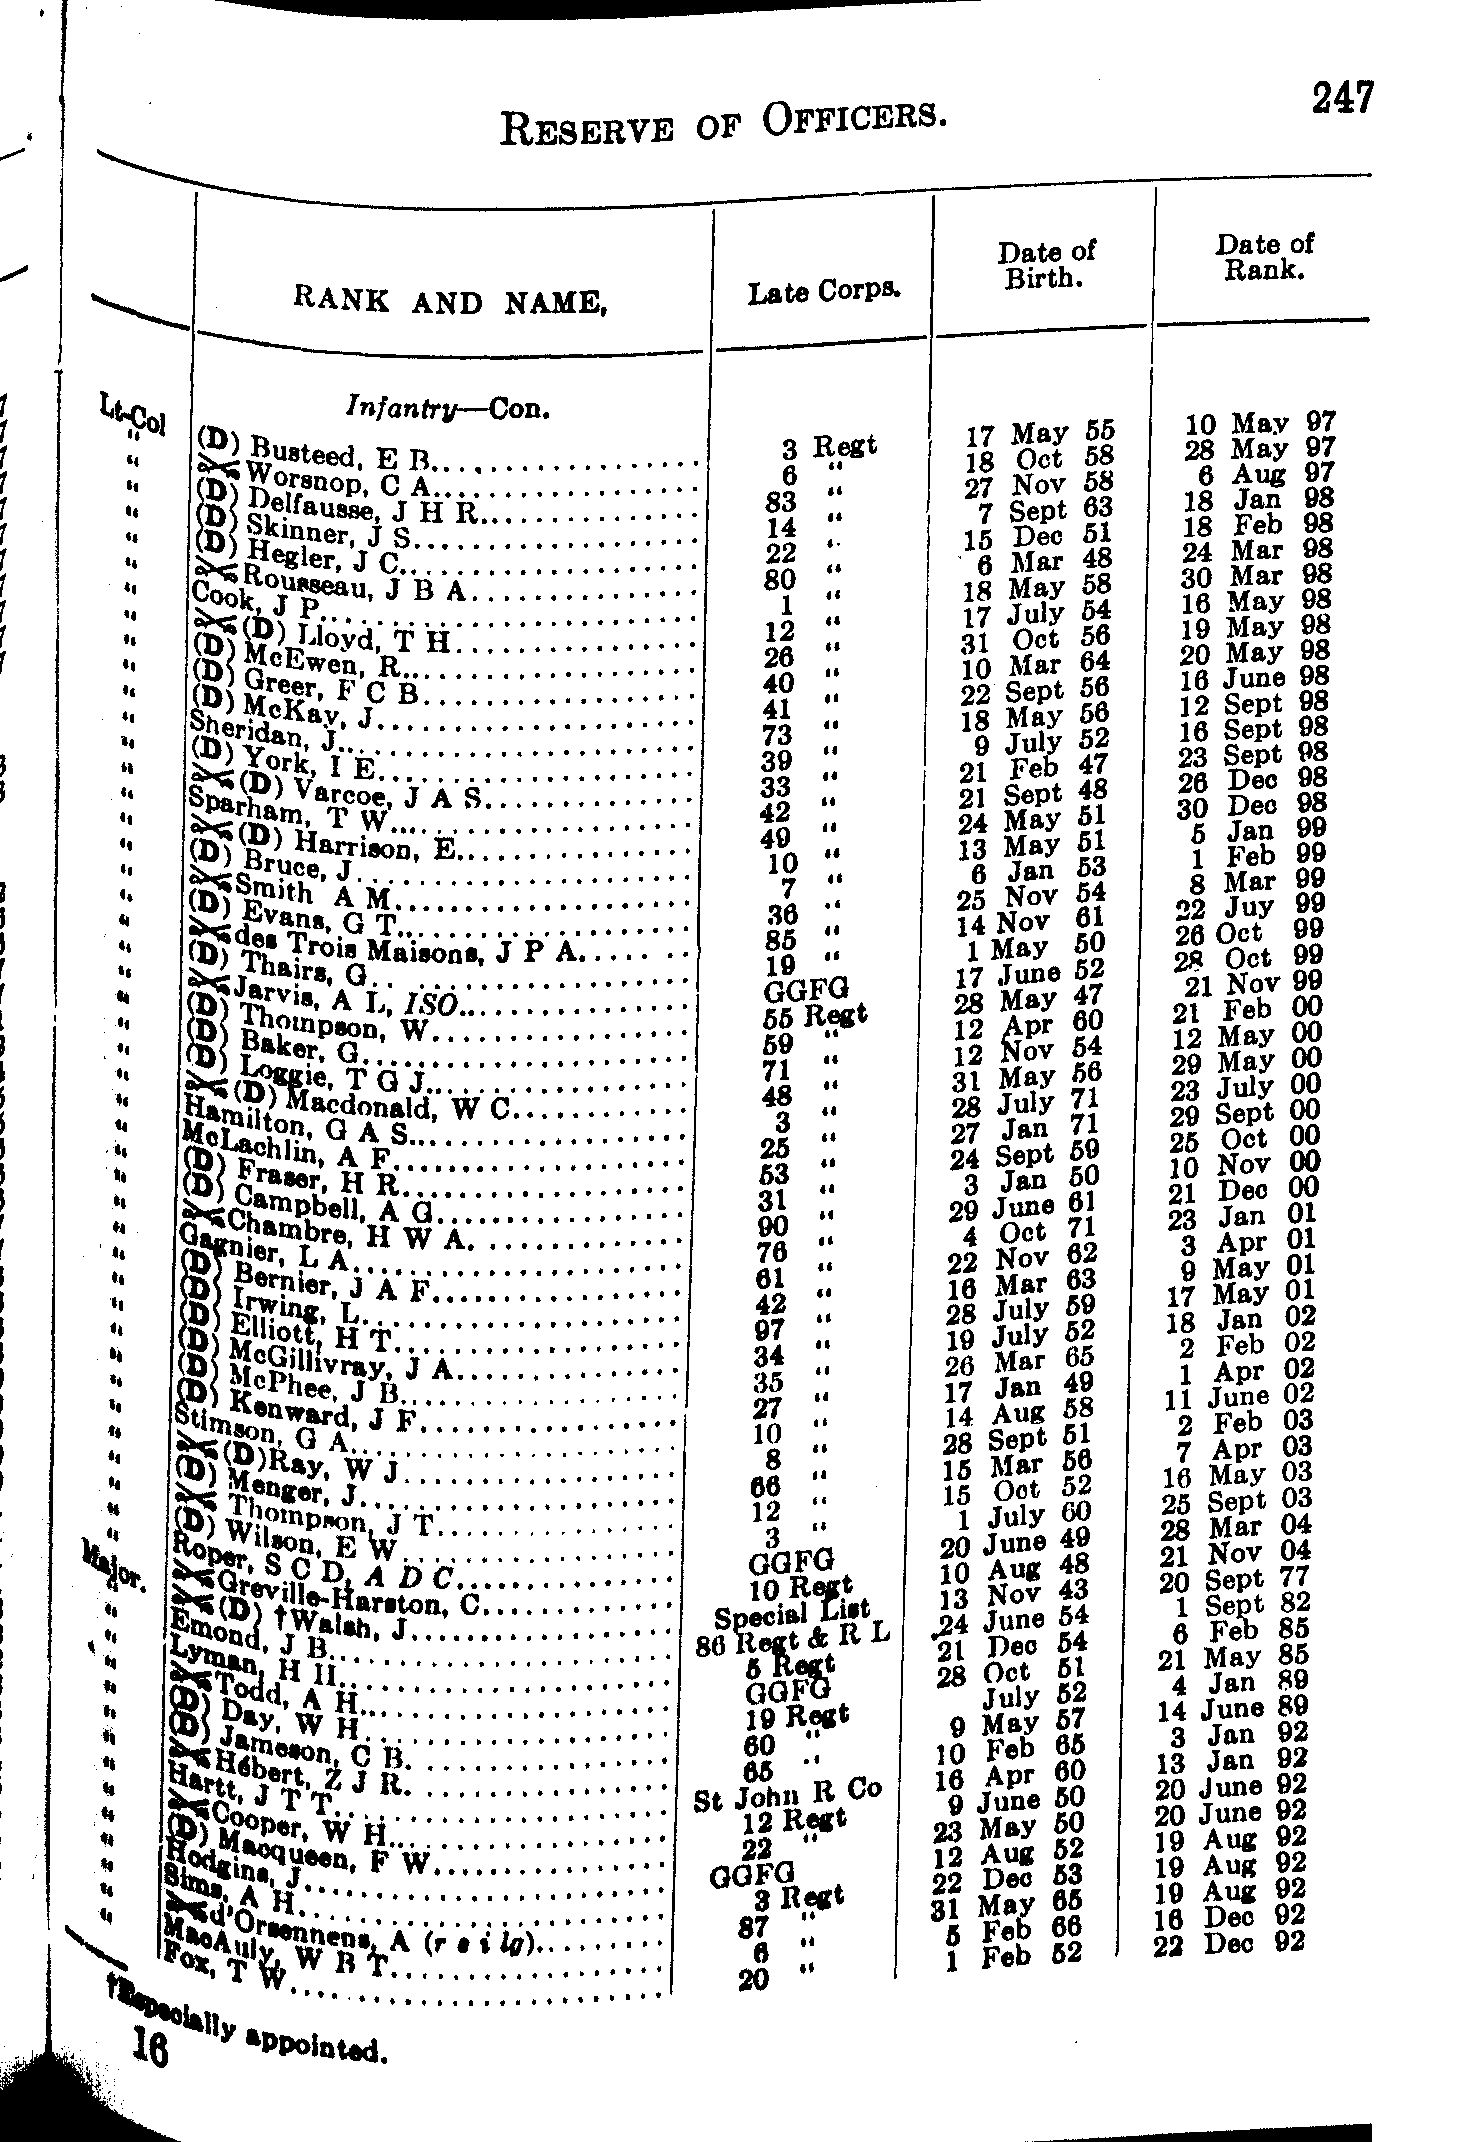 247
RESERVE OF OFFICERS.
RANK AND NAME, Late Corps. Date of Birth. Date of Rank.
Infantry—Con.
Lt-Col (D) Busteed, E B 3 Regt 17 May 55 10 May 97
" Worsnop, C A 6 " 18 Oct 58 28 May 97
" (D) Delfausse, J H R 83 " 27 Nov 58 6 Aug 97
" (D) Skinner, J S 14 " 7 Sept 63 18 Jan 98
" (D) Hegler, J C 22 " 15 Dec 51 18 Feb 98
" Rousseau, J B A 80 " 6 Mar 48 24 Mar 98
" Cook, J P 1 " 18 May 58 30 Mar 98
" (D) Lloyd, T H 12 " 17 July 54 16 May 98
" (D) McEwen, R 26 " 31 Oct 56 19 May 98
" (D) Greer, F C B 40 " 10 Mar 64 20 May 98
" (D) McKay, J 41 " 22 Sept 56 16 June 98
" Sheridan, J 73 " 18 May 56 12 Sept 98
" (D) York, I E 39 " 9 July 52 16 Sept 98
" (D) Varcoe, J A S 33 " 21 Feb 47 23 Sept 98
" Sparham, T W 42 " 21 Sept 48 26 Dec 98
" (D) Harrison, E 49 " 24 May 51 30 Dec 98
" (D) Bruce, J 10 " 13 May 51 5 Jan 99
" Smith A M 7 " 6 Jan 53 1 Feb 99
" (D) Evans, G T 36 " 25 Nov 54 8 Mar 99
" des Trois Maisons, J P A 85 " 14 Nov 61 22 Juy 99
" (D) Thairs, G 19 " 1 May 50 26 Oct 99
" Jarvis, A L, ISO GGFG 17 June 52 28 Oct 99
" (D) Thompson, W 55 Regt 28 May 47 21 Nov 99
" (D) Baker, G 59 " 12 Apr 60 21 Feb 00
" (D) Loggie, T G J 71 " 12 Nov 54 12 May 00
" (D) Macdonald, W C 48 " 31 May 56 29 May 00
" Hamilton, G A S 3 " 28 July 71 23 July 00
" McLachlin, A F 25 " 27 Jan 71 29 Sept 00
" (D) Fraser, H R 53 " 24 Sept 59 25 Oct 00
" (D) Campbell, A G 31 " 3 Jan 50 10 Nov 00
" Chambre, H W A 90 " 29 June 61 21 Dec 00
" Gagnier, L A 76 " 4 Oct 71 23 Jan 01
" (D) Bernier, J A F 61 " 22 Nov 62 3 Apr 01
" (D) Irwing, L 42 " 16 Mar 63 9 May 01
" (D) Elliott, H T 97 " 28 July 59 17 May 01
" (D) McGillivray, J A 34 " 19 July 52 18 Jan 02
" (D) McPhee, J B 35 " 26 Mar 65 2 Feb 02
" (D) Kenward, J F 27 " 17 Jan 49 1 Apr 02
" Stimson, G A 10 " 14 Aug 58 11 June 02
" (D) Ray, W J 8 " 28 Sept 51 2 Feb 03
" (D) Menger, J 66 " 15 Mar 56 7 Apr 03
" Thompson, J T 12 " 15 Oct 52 16 May 03
" (D) Wilson, E W 3 " 1 July 60 25 Sept 03
" Roper, S C D, A D C GGFG 20 June 49 28 Mar 04
" Greville-Harston, C 10 Regt 10 Aug 48 21 Nov 04
Major. (D) †Walsh, J Special List 13 Nov 43 20 Sept 77
" Emond, J B 86 Regt & R L 24 June 54 1 Sept 82
" Lyman, H H 5 Regt 21 Dec 54 6 Feb 85
" Todd, A H GGFG 28 Oct 51 21 May 85
" (D) Day, W H 19 Regt July 52 4 Jan 89
" (D) Jameson, C B 60 " 9 May 57 14 June 89
" Hébert, Z J R 65 " 10 Feb 65 3 Jan 92
" Hartt, J T T St John R Co 16 Apr 60 13 Jan 92
" Cooper, W H 12 Regt 9 June 50 20 June 92
" (D) Macqueen, F W 22 " 23 May 50 20 June 92
" Hodgins, J GGFG 12 Aug 52 19 Aug 92
" Sims, A H 3 Regt 22 Dec 53 19 Aug 92
" d'Orsennens, A (r s i lg) 87 " 31 May 65 19 Aug 92
" MacAuly, W B T 6 " 5 Feb 66 16 Dec 92
" Fox, T W 20 " 1 Feb 52 22 Dec 92
†Especially appointed.
16